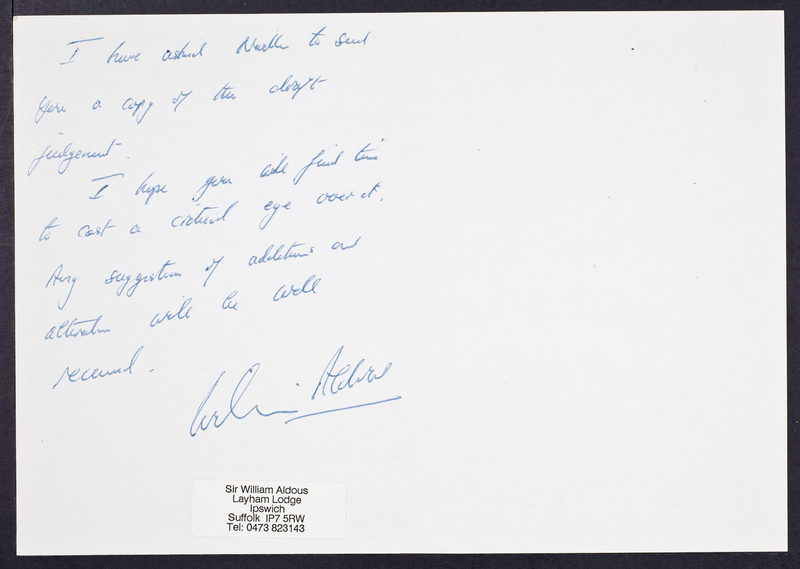 I have asked Noelle to send
you a copy of the draft
judgement.
I hope you will find time
to cast a critical eye over it.
Any suggestion of additions and
alteration will be well
received.
William Aldous
Sir William Aldous
Layham Lodge
Ipswich
Suffolk IP7 5RW
Tel: 0473 823143